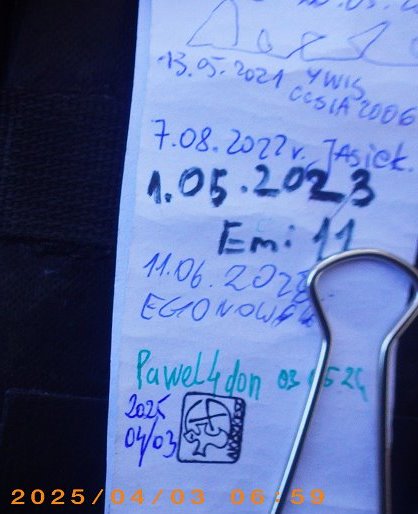 13.05.2021 YWIS
OCSIA 2006
7.08.2022r. JAsiek.
1.05.2023
Emi 11
11.06.202
EGIONOWA
Pawel4don 03 05.24
2025
04/03
2025/04/03 06:59